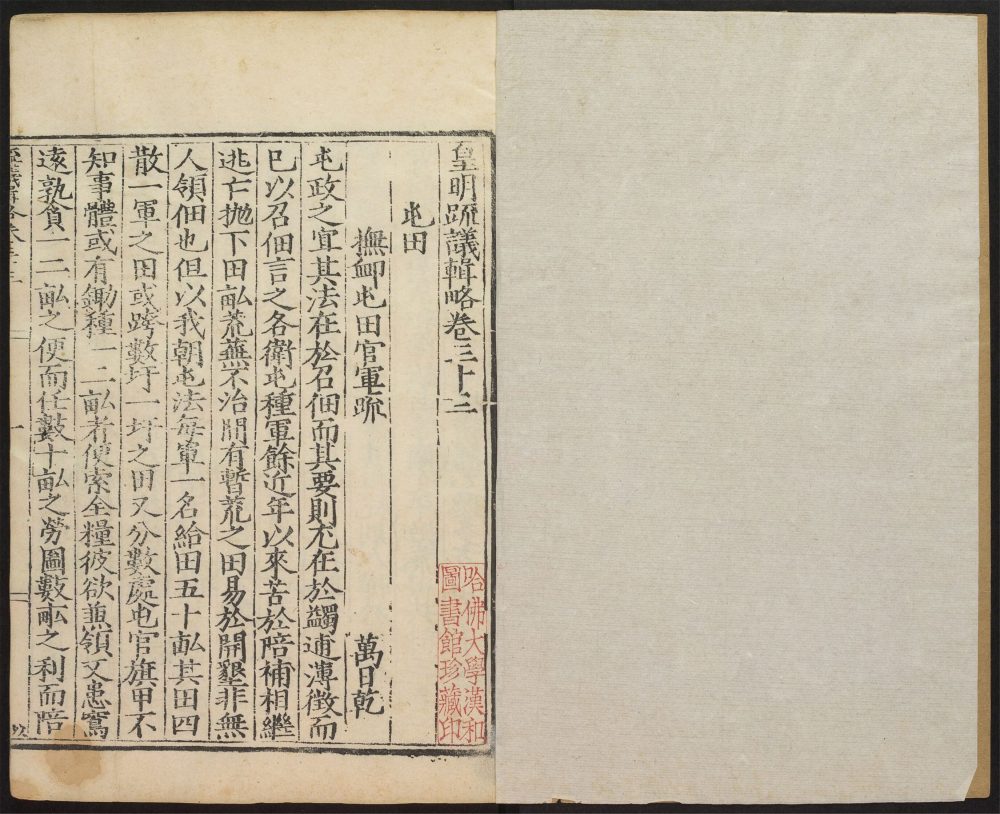 皇明疏議輯略卷三十三
屯田
撫卹屯田官軍疏
萬日乾
屯政之宜其法在於召佃而其要則尤在於蠲逋薄徵而
已以召佃言之各衛屯種軍餘近年以來苦於陪補相繼
逃亡拋下田畝荒蕪不治間有暫荒之田易於開墾非無
人領佃也但以我朝屯法每軍一名給田五十畝其田四
散一軍之田或跨數圩一圩之田又分數處屯官旗甲不
知事體或有鋤種一二畝者便索全糧彼欲兼領又患寫
遠孰貪一二畝之便而任數十畝之勞圖數畝之利而陪
哈佛大學漢和
圖書館珍藏印